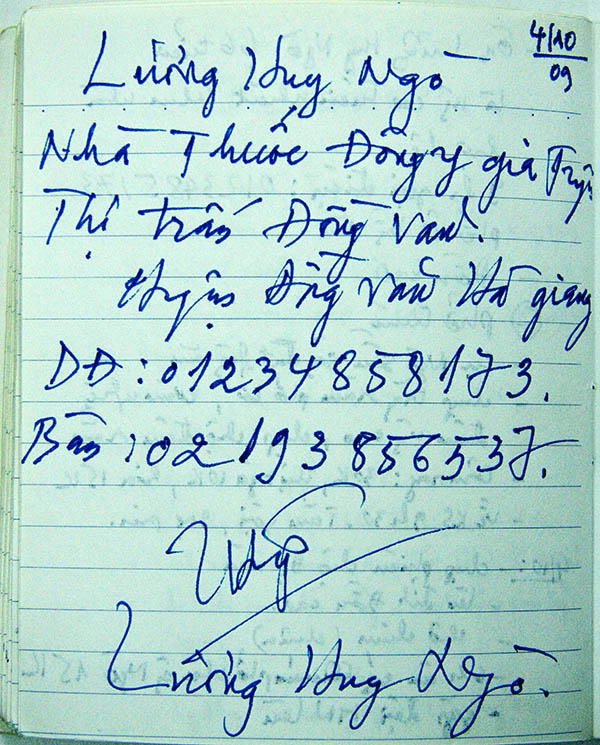 4/10
09
Lương Huy Ngò
Nhà Thuốc Đông y gia Truyền
Thị trấn Đồng Văn.
Huyện Đồng Văn Hà giang
DĐ: 01234858173.
Bàn: 02193856537.
Lương Huy Ngò.